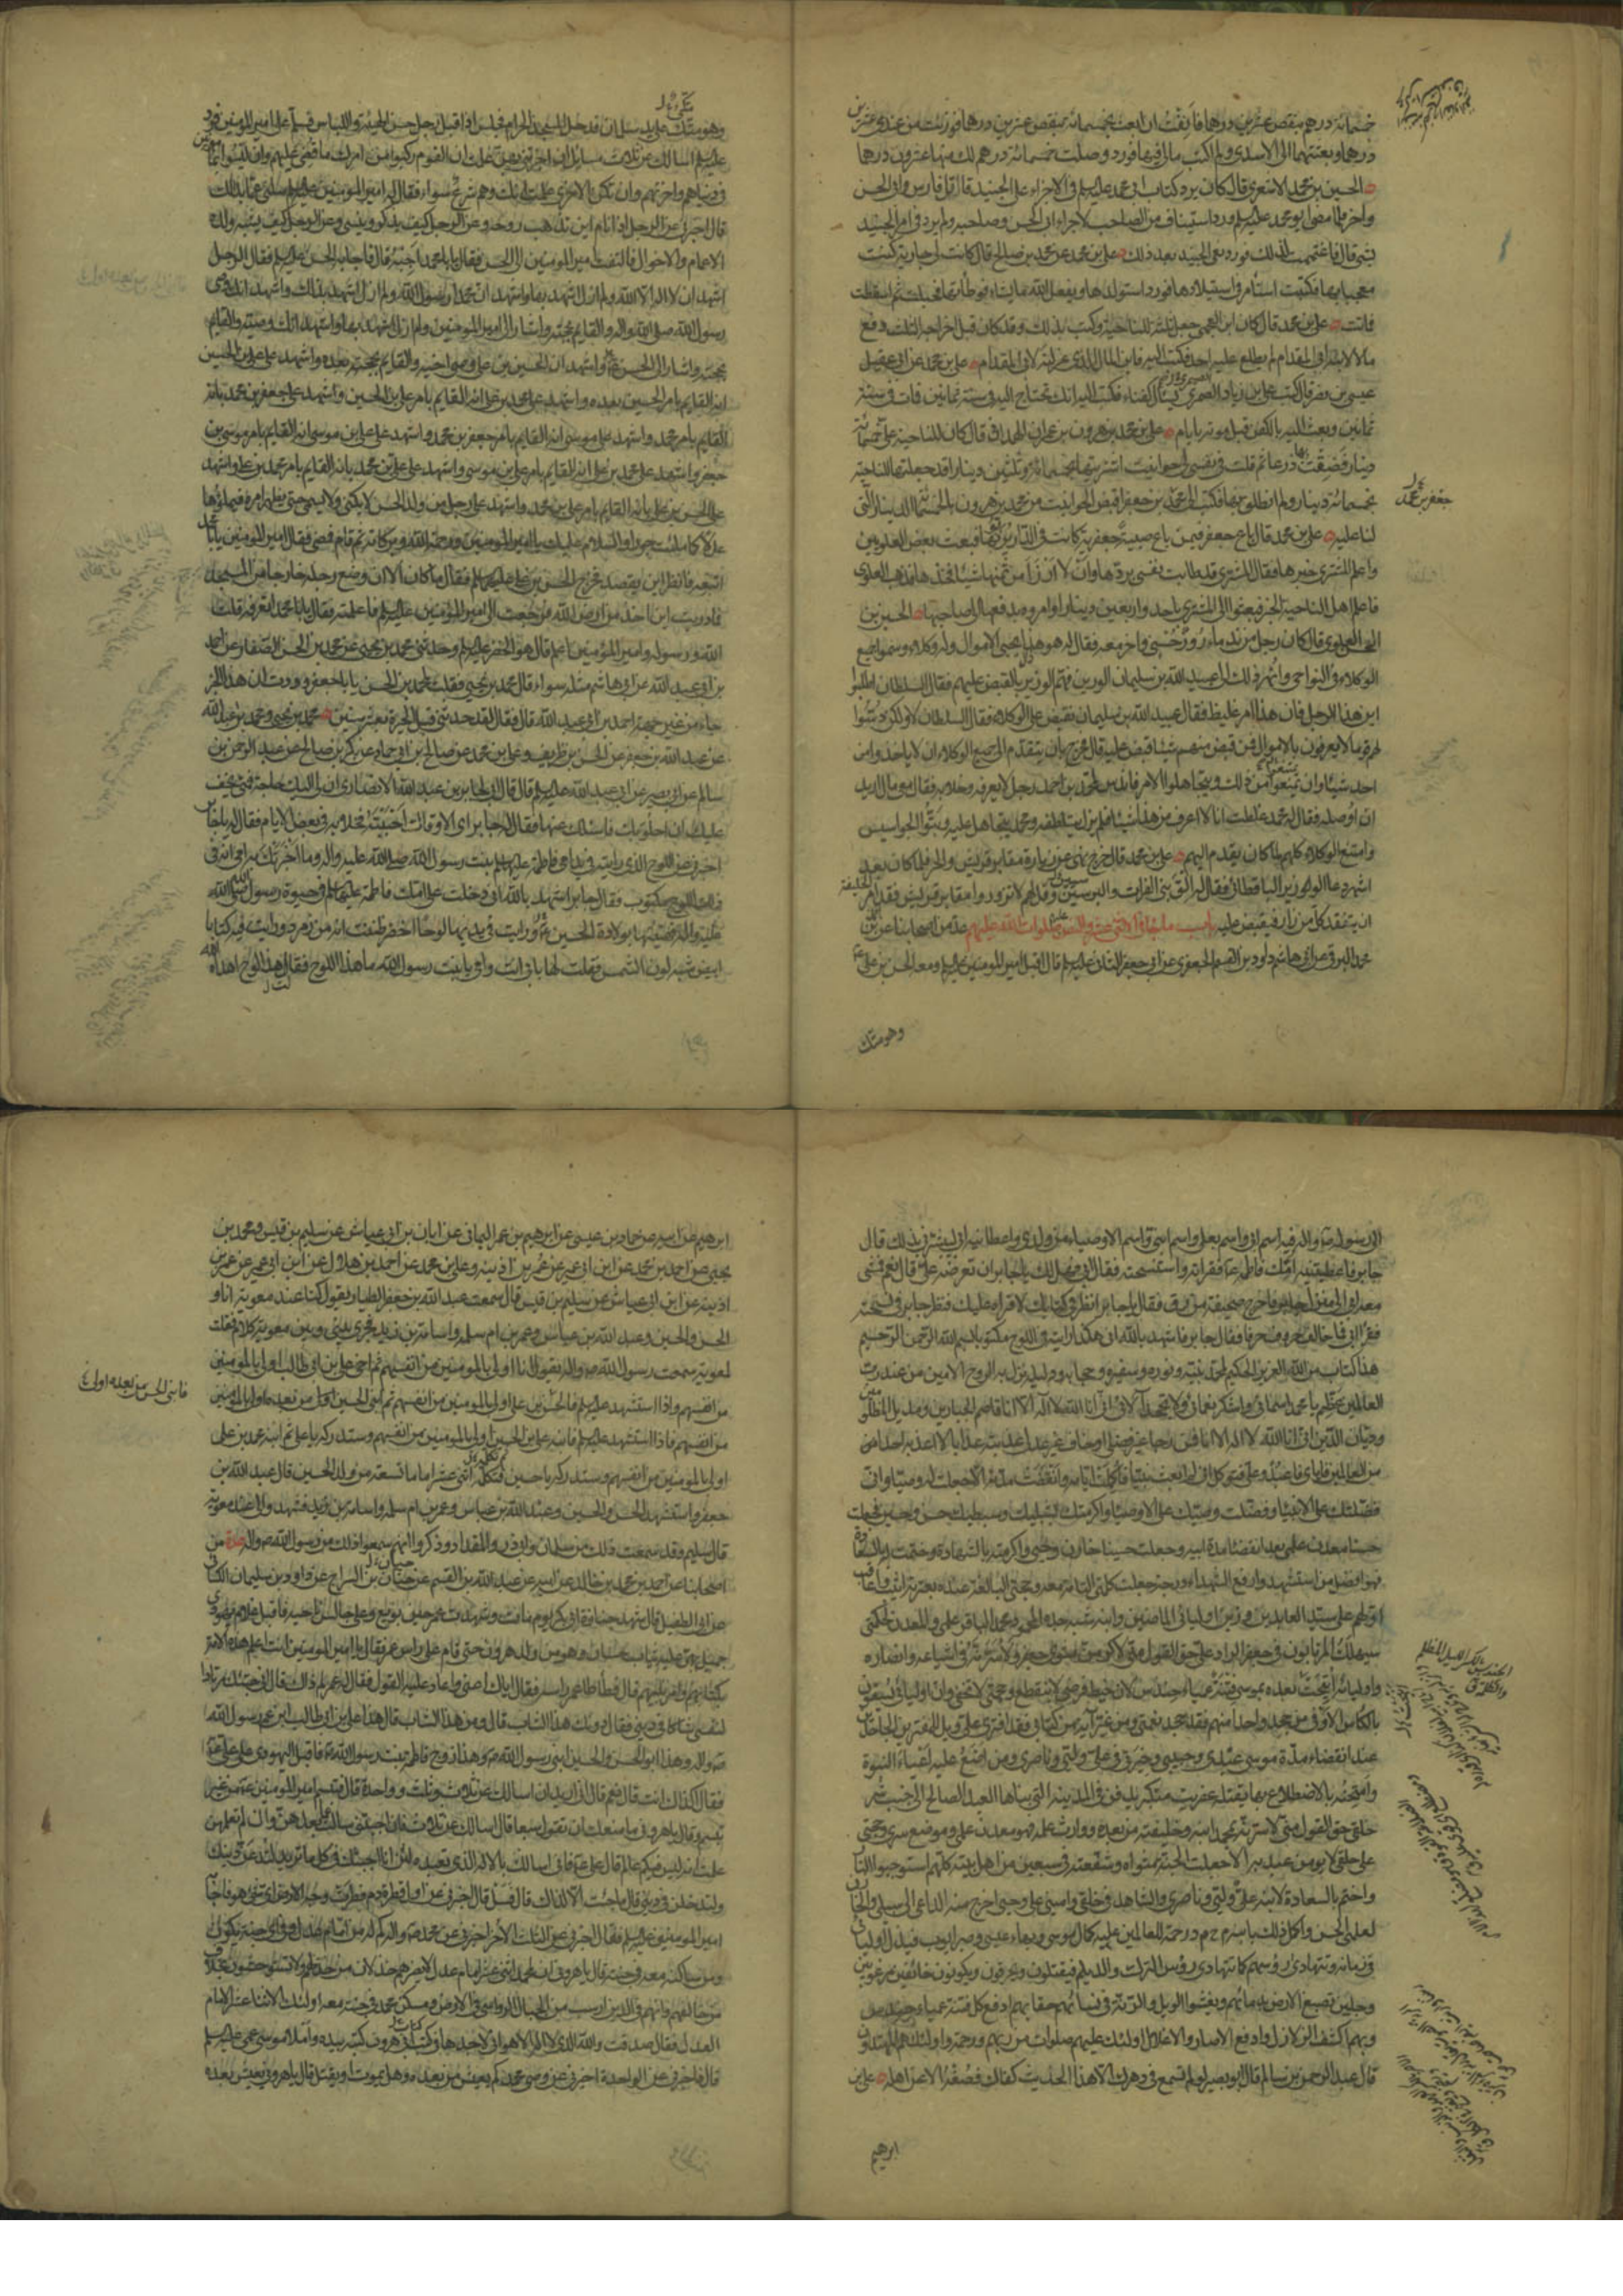 خمسمائة درهم ينقص عشرين درهما فانفت ان ابعث بخمسمائة ينقص عشرين درهما فوزنت من عندي عشرين
درهما وبعثتها الى الاسدى ولم اكتب مالى فيها فورد وصلت خمسمائة درهم لك منها عشرون درهما
الحسين بن محمد الاشعرى قال كان يرد كتاب ابى محمد عليه السلم فى الاجراء على الجنيد قاتل فارس وابى الحسن
واخر فلما مضى ابو محمد عليه السلم ورد استيناف من الصاحب لاجراء ابى الحسن وصاحبه ولم يرد فى امر الجنيد
بشئ قال فاغتممت لذلك فورد نعى الجنيد بعد ذلك على بن محمد عن محمد بن صالح قال كانت لى جارية كنت
معجبا بها فكتبت استامر فى استيلادها فورد استولدها ويفعل الله ما يشاء فوطأتها فحبلت ثم اسقطت
فماتت على بن محمد قال كان ابن العجمى جعل ثلثه للناحية وكتب بذلك وقد كان قبل اخراجه الثلث دفع
مالا لابنه ابى المقدام لم يطلع عليه احد فكتب اليه فاين المال الذى عزلته لابى المقدام على بن محمد عن ابى عقيل
عيسى بن نصر قال كتب على بن زياد الصيمرى يسئل كفنا فكتب اليه انك تحتاج اليه فى سنة ثمانين فمات فى سنة
ثمانين وبعث اليه بالكفن قبل موته بايام على بن محمد عن محمد بن هرون بن عمران الهمدانى قال كان للناحية على خمسمائة
دينار فضقت بها ذرعا ثم قلت فى نفسى لى حوانيت اشتريتها بخمسمائة وثلثين دينارا قد جعلتها للناحية
بخمسمائة دينار ولم انطق بها فكتب الى محمد بن جعفر اقبض الحوانيت من محمد بن هرون بالخمسمائة دينار التى
لنا عليه على بن محمد قال باع جعفر فيمن باع صبية جعفرية كانت فى الدار يربونها فبعث بعض العلويين
واعلم المشترى خبرها فقال المشترى قد طابت نفسى بردها وان لا ارزأ من ثمنها شيئا فخذها فذهب العلوى
فاعلم اهل الناحية الخبر فبعثوا الى المشترى باحد واربعين دينارا وامروه بدفعها الى صاحبها الحسين بن
الحسن العلوى قال كان رجل من ندماء روز حسنى واخر معه فقال له هو ذا يجبى الاموال وله وكلاء وسموا جميع
الوكلاء فى النواحى وانهى ذلك الى عبيد الله بن سليمان الوزير فهم الوزير بالقبض عليهم فقال السلطان اطلبوا
اين هذا الرجل فان هذا امر غليظ فقال عبيد الله بن سليمان نقبض على الوكلاء فقال السلطان لا ولكن دسوا
لهم قوما لا يعرفون بالاموال فمن قبض منهم شيئا قبض عليه قال فخرج بان يتقدم الى جميع الوكلاء ان لا ياخذوا من
احد شيئا وان يمتنعوا من ذلك ويتجاهلوا الامر فاندس لمحمد بن احمد رجل لا يعرفه وخلا به فقال معى مال اريد
ان اوصله فقال له محمد غلطت انا لا اعرف من هذا شيئا فلم يزل يتلطفه ومحمد يتجاهل عليه وبثوا الجواسيس
وامتنع الوكلاء كلهم لما كان يقدم اليهم على بن محمد قال خرج نهى عن زيارة مقابر قريش والحير فلما كان بعد
اشهر دعا الوزير الباقطائى فقال له الق بنى الفرات والبرسيين وقل لهم لا تزوروا مقابر قريش فقد امر الخليفة
ان يتفقد كل من زار فيقبض عليه باب ما جاء فى الاثنى عشر والنص عليهم صلوات الله عليهم عدة من اصحابنا عن احمد بن
محمد البرقى عن ابى هاشم داود بن القسم الجعفرى عن ابى جعفر الثانى عليه السلم قال اقبل امير المؤمنين عليه السلم ومعه الحسن بن على
وهو متك
جعفر بن محمد
وهو متكئ على يد سلمان فدخل المسجد الحرام فجلس اذا قبل رجل حسن الهيئة واللباس فسلم على امير المؤمنين فرد
عليه السلم اسالك عن ثلاث مسائل ان اخبرتنى بهن علمت ان القوم ركبوا من امرك ما قضى عليهم وان ليسوا بمامونين
فى دنياهم واخرتهم وان تكن الاخرى علمت انك وهم شرع سواء فقال له امير المؤمنين عليه السلم سلنى عما بدا لك
قال اخبرنى عن الرجل اذا نام اين تذهب روحه وعن الرجل كيف يذكر وينسى وعن الرجل كيف يشبه ولده
الاعمام والاخوال فالتفت امير المؤمنين الى الحسن فقال يا با محمد اجبه قال فاجابه الحسن عليه السلم فقال الرجل
اشهد ان لا اله الا الله ولم ازل اشهد بها واشهد ان محمدا رسول الله ولم ازل اشهد بذلك واشهد انك وصى
رسول الله صلى الله عليه واله والقايم بحجته واشار الى امير المؤمنين ولم ازل اشهد بها واشهد انك وصيه والقايم
بحجته واشار الى الحسن واشهد ان الحسين بن على وصى اخيه والقايم بحجته بعده واشهد على على بن الحسين
انه القايم بامر الحسين بعده واشهد على محمد بن على انه القايم بامر على بن الحسين واشهد على جعفر بن محمد بانه
القايم بامر محمد واشهد على موسى انه القايم بامر جعفر بن محمد واشهد على على بن موسى انه القايم بامر موسى بن
جعفر واشهد على محمد بن على انه القايم بامر على بن موسى واشهد على على بن محمد بانه القايم بامر محمد بن على واشهد
على الحسن بن على بانه القايم بامر على بن محمد واشهد على رجل من ولد الحسن لا يكنى ولا يسمى حتى يظهر امره فيملؤها
عدلا كما ملئت جورا والسلام عليك يا امير المؤمنين ورحمة الله وبركاته ثم قام فمضى فقال امير المؤمنين يا با محمد
اتبعه فانظر اين يقصد فخرج الحسن بن على عليهما السلم فقال ما كان الا ان وضع رجله خارجا من المسجد
فما دريت اين اخذ من ارض الله فرجعت الى امير المؤمنين عليه السلم فاعلمته فقال يا با محمد اتعرفه قلت
الله ورسوله وامير المؤمنين اعلم قال هو الخضر عليه السلم وحدثنى محمد بن يحيى عن محمد بن الحسن الصفار عن احمد
بن ابى عبد الله عن ابى هاشم مثله سواء قال محمد بن يحيى فقلت لمحمد بن الحسن يا با جعفر وددت ان هذا الخبر
جاء من غير جهة احمد بن ابى عبد الله قال فقال لقد حدثنى قبل الحيرة بعشر سنين محمد بن يحيى ومحمد بن عبد الله
عن عبد الله بن جعفر عن الحسن بن ظريف وعلى بن محمد عن صالح بن ابى حماد عن بكر بن صالح عن عبد الرحمن بن
سالم عن ابى بصير عن ابى عبد الله عليه السلم قال قال ابى لجابر بن عبد الله الانصارى ان لى اليك حاجة فمتى يخف
عليك ان اخلو بك فاسئلك عنها فقال له جابر اى الاوقات احببته فخلا به فى بعض الايام فقال له يا جابر
اخبرنى عن اللوح الذى رايته فى يد امى فاطمة عليها السلم بنت رسول الله صلى الله عليه واله وما اخبرتك به امى انه فى
ذلك اللوح مكتوب فقال جابر اشهد بالله انى دخلت على امك فاطمة عليها السلم فى حيوة رسول الله صلى الله
عليه واله فهنيتها بولادة الحسين ورايت فى يديها لوحا اخضر ظننت انه من زمرد ورايت فيه كتابا
ابيض شبه لون الشمس فقلت لها بابى انت وامى يا بنت رسول الله ما هذا اللوح فقالت هذا لوح اهداه الله
الى رسوله ص واله فيه اسم ابى واسم بعلى واسم ابنى واسم الاوصياء من ولدى واعطانيه ابى ليبشرنى بذلك قال
جابر فاعطتنيه امك فاطمة ع فقراته واستنسخته فقال ابى فهل لك يا جابر ان تعرضه على قال نعم فمشى
معه ابى الى منزل جابر فاخرج صحيفة من رق فقال يا جابر انظر فى كتابك لاقرا عليك فنظر جابر فى نسخته
فقرا ابى فما خالف حرف حرفا فقال جابر فاشهد بالله انى هكذا رايته فى اللوح مكتوبا بسم الله الرحمن الرحيم
هذا كتاب من الله العزيز الحكيم لمحمد نبيه ونوره وسفيره وحجابه ودليله نزل به الروح الامين من عند رب
العالمين عظم يا محمد اسمائى واشكر نعمائى ولا تجحد الائى انى انا الله لا اله الا انا قاصم الجبارين ومديل المظلومين
وديان الدين انى انا الله لا اله الا انا فمن رجا غير فضلى او خاف غير عدلى عذبته عذابا لا اعذبه احدا من
من العالمين فاياى فاعبد وعلى فتوكل انى لم ابعث نبيا فاكملت ايامه وانقضت مدته الا جعلت له وصيا وانى
فضلتك على الانبياء وفضلت وصيك على الاوصياء واكرمتك بشبليك وسبطيك حسن وحسين فجعلت
حسنا معدن علمى بعد انقضاء مدة ابيه وجعلت حسينا خازن وحيى واكرمته بالشهادة وختمت له بالسعادة
فهو افضل من استشهد وارفع الشهداء درجة جعلت كلمتى التامة معه وحجتى البالغة عنده بعترته اثيب واعاقب
اولهم على سيد العابدين وزين اوليائى الماضين وابنه شبه جده المحمود محمد الباقر علمى والمعدن لحكمتى
سيهلك المرتابون فى جعفر الراد عليه كالراد على حق القول منى لاكرمن مثوى جعفر ولاسرنه فى اشياعه وانصاره
واوليائه اتيحت بعده بموسى فتنة عمياء حندس لان خيط فرضى لا ينقطع وحجتى لا تخفى وان اوليائى يسقون
بالكاس الاوفى من جحد واحدا منهم فقد جحد نعمتى ومن غير آية من كتابى فقد افترى على ويل للمفترين الجاحدين
عند انقضاء مدة موسى عبدى وحبيبى وخيرتى فى على وليى وناصرى ومن اضع عليه اعباء النبوة
وامتحنه بالاضطلاع بها يقتله عفريت متكبر يدفن فى المدينة التى بناها العبد الصالح الى جنب شر
خلقى حق القول منى لاسرنه بمحمد ابنه وخليفته من بعده ووارث علمه فهو معدن علمى وموضع سرى وحجتى
على خلقى لا يؤمن عبد به الا جعلت الجنة مثواه وشفعته فى سبعين من اهل بيته كلهم استوجبوا النار
واختم بالسعادة لابنه على وليى وناصرى والشاهد فى خلقى وامينى على وحيى اخرج منه الداعى الى سبيلى والخازن
لعلمى الحسن واكمل ذلك بابنه م ح م د رحمة للعالمين عليه كمال موسى وبهاء عيسى وصبر ايوب فيذل اوليائى
فى زمانه وتتهادى رؤسهم كما تتهادى رؤس الترك والديلم فيقتلون ويحرقون ويكونون خائفين مرعوبين
وجلين تصبغ الارض بدمائهم ويفشوا الويل والرنة فى نسائهم اولئك اوليائى حقا بهم ادفع كل فتنة عمياء حندس
وبهم اكشف الزلازل وادفع الاصار والاغلال اولئك عليهم صلوات من ربهم ورحمة واولئك هم المهتدون
قال عبد الرحمن بن سالم قال ابو بصير لو لم تسمع فى دهرك الا هذا الحديث لكفاك فصنه الا عن اهله على بن
ابرهيم
ابرهيم عن ابيه عن حماد بن عيسى عن ابرهيم بن عمر اليمانى عن ابان بن ابى عياش عن سليم بن قيس ومحمد بن
يحيى عن احمد بن محمد عن ابن ابى عمير عن عمر بن اذينه وعلى بن محمد عن احمد بن هلال عن ابن ابى عمير عن عمر بن
اذينه عن ابن ابى عياش عن سليم بن قيس قال سمعت عبد الله بن جعفر الطيار يقول كنا عند معوية انا و
الحسن والحسين وعبد الله بن عباس وعمر بن ام سلمه واسامة بن زيد فجرى بينى وبين معوية كلام فقلت
لمعوية سمعت رسول الله ص واله يقول انا اولى بالمؤمنين من انفسهم ثم اخى على بن ابى طالب اولى بالمؤمنين
من انفسهم واذا استشهد عليه السلم فالحسن بن على اولى بالمؤمنين من انفسهم ثم ابنى الحسين اولى من بعده اولى بالمؤمنين
من انفسهم فاذا استشهد عليه السلم فابنه على بن الحسين اولى بالمؤمنين من انفسهم وستدركه يا على ثم ابنه محمد بن على
اولى بالمؤمنين من انفسهم وستدركه يا حسين ثم تكمله اثنى عشر اماما تسعة من ولد الحسين قال عبد الله بن
جعفر واستشهدت الحسن والحسين وعبد الله بن عباس وعمر بن ام سلمه واسامة بن زيد فشهدوا لى عند معوية
قال سليم وقد سمعت ذلك من سلمان وابى ذر والمقداد وذكروا انهم سمعوا ذلك من رسول الله ص واله عدة من
اصحابنا عن احمد بن محمد بن خالد عن ابيه عن عبد الله بن القسم عن حنان بن السراج عن داود بن سليمان الكسائى
عن ابى الطفيل قال شهدت جنازة ابى بكر يوم مات وشهدت عمر حين بويع وعلى جالس ناحية فاقبل غلام يهودى
جميل عليه ثياب حسان وهو من ولد هرون حتى قام على راس عمر فقال يا امير المؤمنين انت اعلم هذه الامة
بكتابهم وامر نبيهم قال فطأطأ عمر راسه فقال اياك اعنى واعاد عليه القول فقال له عمر لم ذاك قال انى جئتك مرتادا
لنفسى شاكا فى دينى فقال دونك هذا الشاب قال ومن هذا الشاب قال هذا على بن ابى طالب ابن عم رسول الله
ص واله وهذا ابو الحسن والحسين ابنى رسول الله ص وهذا زوج فاطمة بنت رسول الله ص فاقبل اليهودى على على ع
فقال اكذاك انت قال نعم قال انى اريد ان اسالك عن ثلاث وثلث وواحدة قال فتبسم امير المؤمنين ع من غير
تبسم وقال يا هرونى ما منعك ان تقول سبعا قال اسالك عن ثلاث فان اجبتنى سالت عما بعدهن وان لم تعلمهن
علمت انه ليس فيكم عالم قال على ع فانى اسالك بالاله الذى تعبده لئن انا اجبتك فى كل ما تريد لتدعن دينك
ولتدخلن فى دينى قال ما جئت الا لذاك قال فسل قال اخبرنى عن اول قطرة دم قطرت على وجه الارض اى قطرة هى فاجابه
امير المؤمنين عليه السلم فقال اخبرنى عن الثلث الاخر اخبرنى عن محمد ص واله كم له من امام عدل وفى اى جنة يكون
ومن ساكنه معه فى جنته قال يا هرونى ان لمحمد اثنى عشر امام عدل لا يضرهم خذلان من خذلهم ولا يستوحشون بخلاف
من خالفهم وانهم فى الدين ارسب من الجبال الرواسى فى الارض ومسكن محمد فى جنته معه اولئك الاثنا عشر الامام
العدل فقال صدقت والله الذى لا اله الا هو انى لاجدها فى كتب ابى هرون كتبه بيده واملاه موسى عمى عليه السلم
قال فاخبرنى عن الواحدة اخبرنى عن وصى محمد كم يعيش من بعده وهل يموت او يقتل قال يا هرونى يعيش بعده
فابنى الحسن من بعده اولى